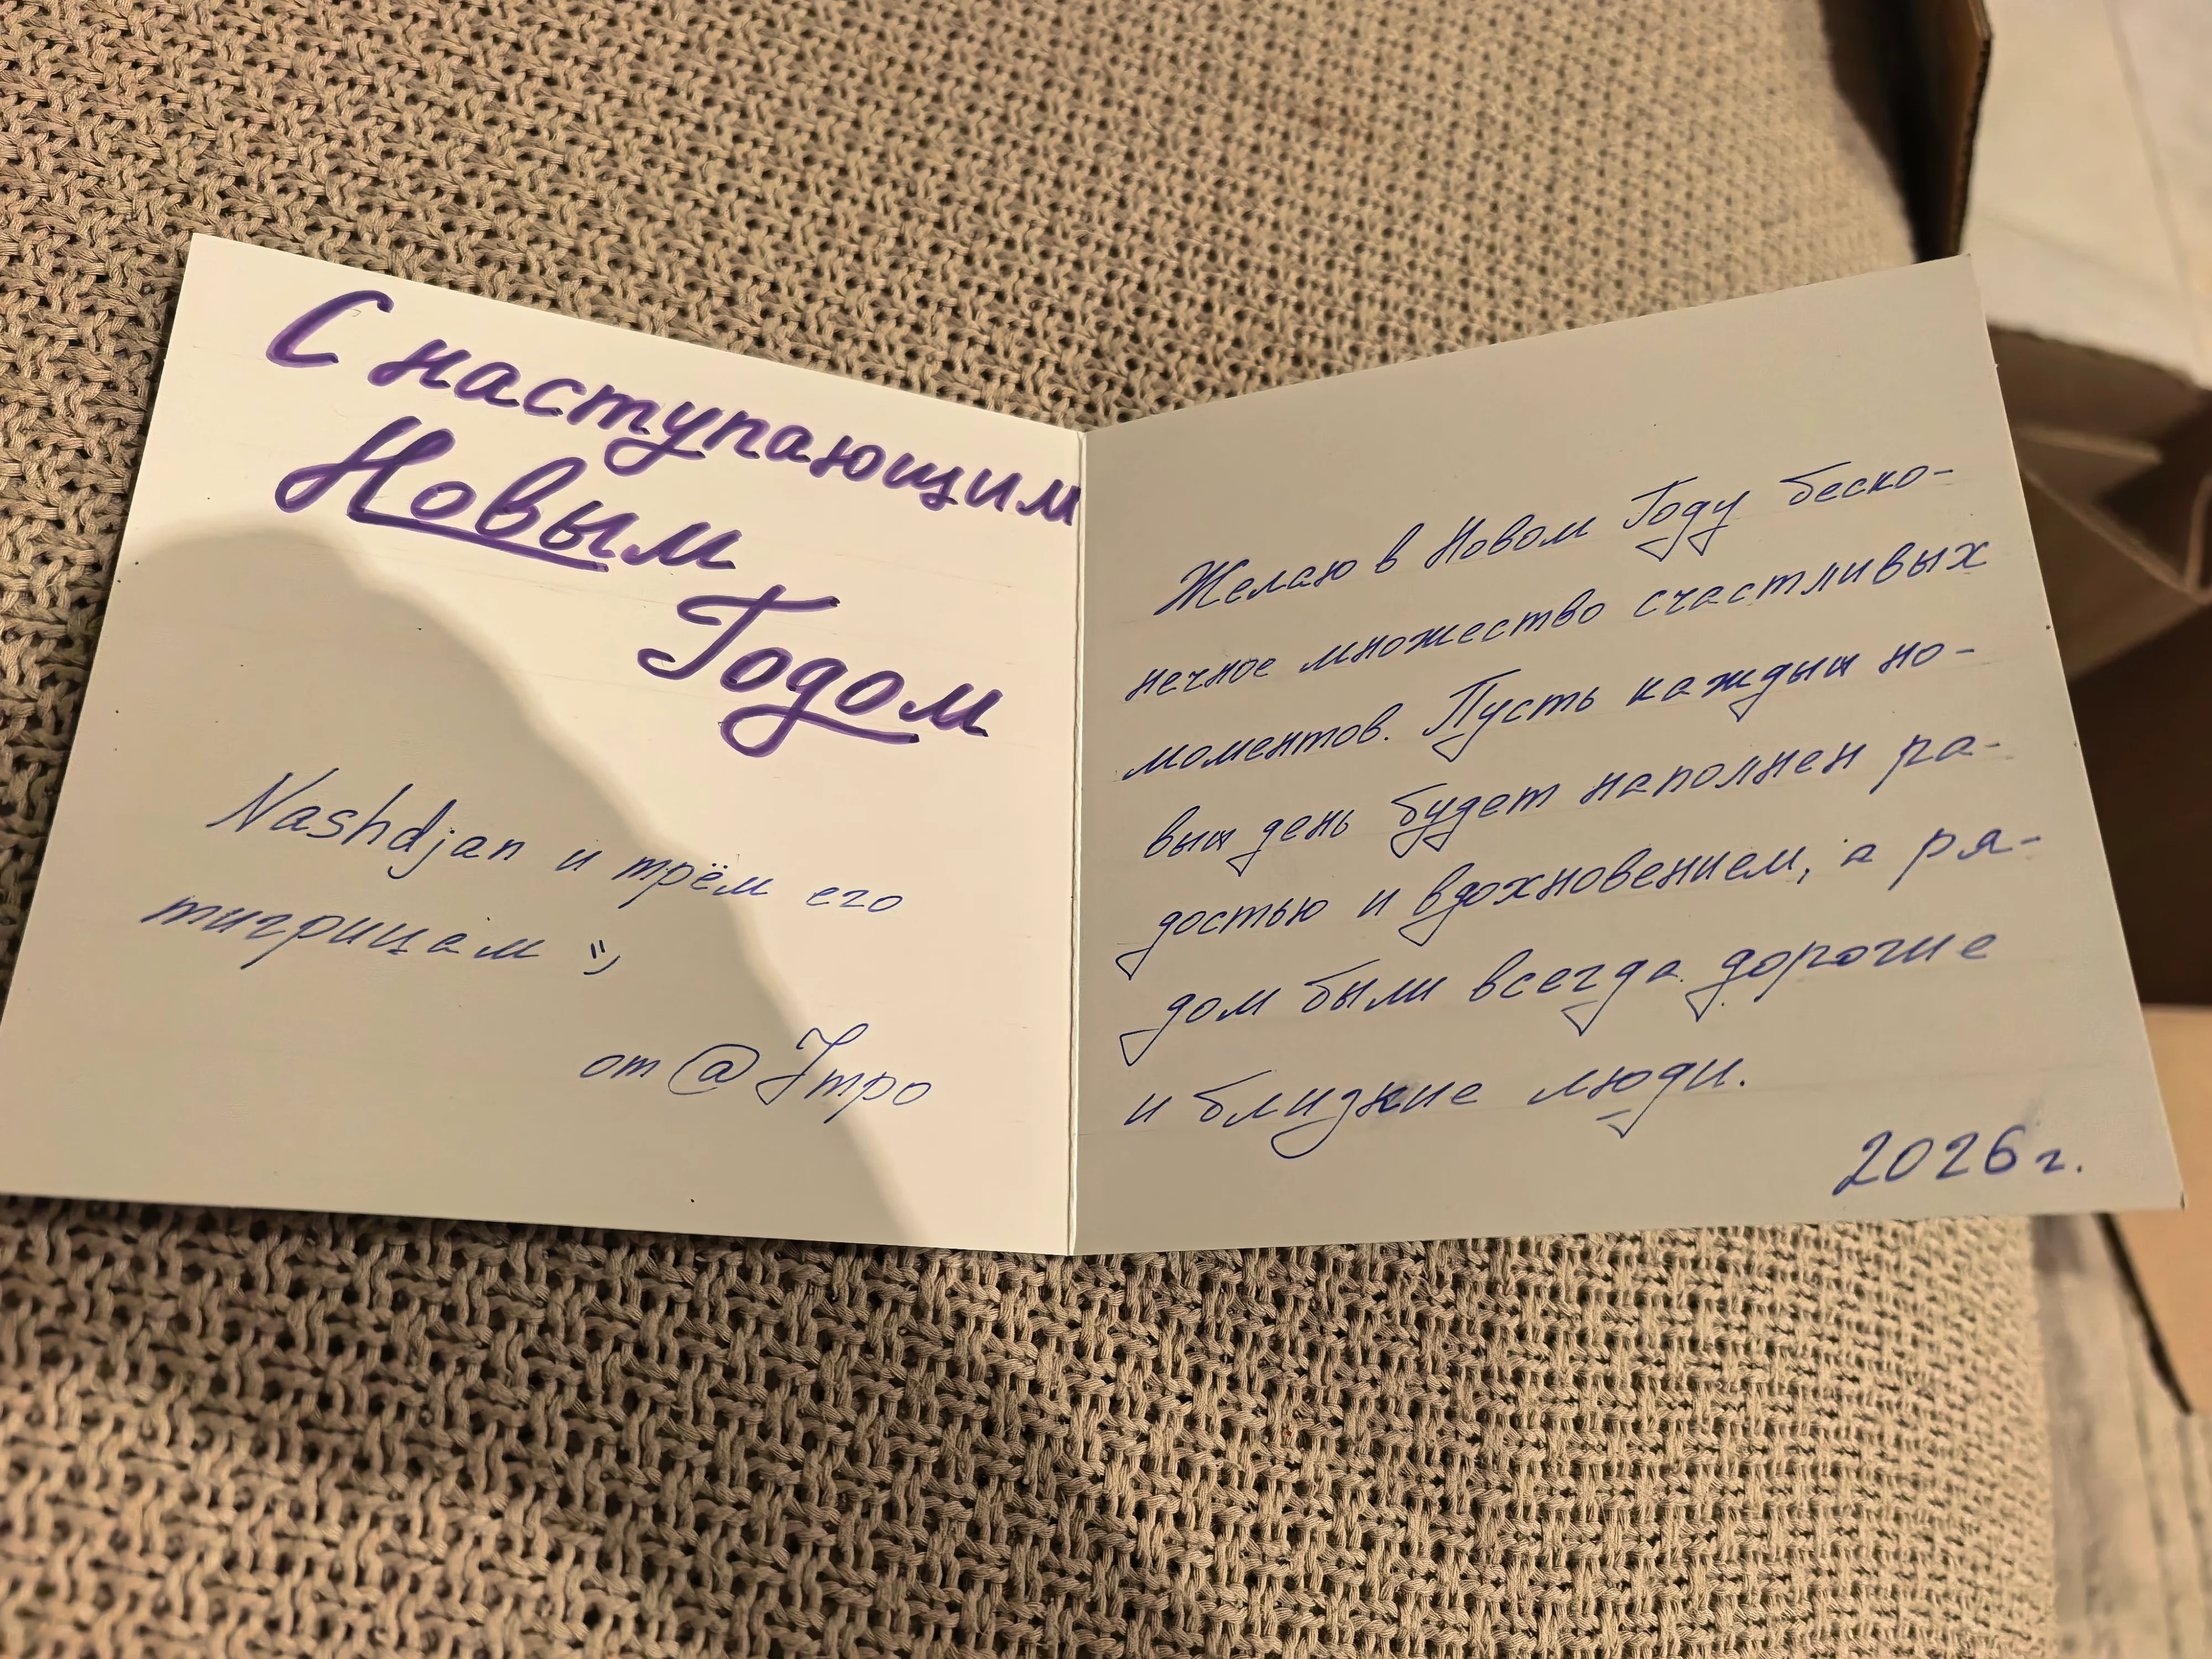 С наступающим
Новым
Годом
Nashdjan и трём его
тигрицам :)
от @
Желаю в Новом Году беско-
нечное множество счастливых
моментов. Пусть каждый но-
вый день будет наполнен ра-
достью и вдохновением, а ря-
дом были всегда дорогие
и близкие люди.
2026 г.